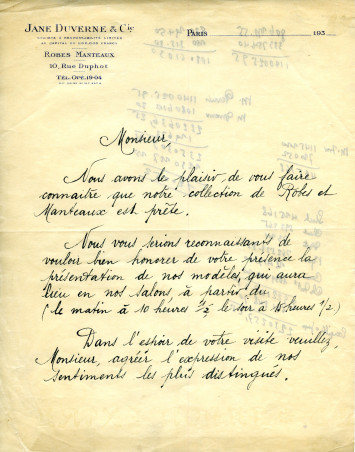 JANE DUVERNE & Cie
SOCIÉTÉ À RESPONSABILITÉ LIMITÉE
ROBES MANTEAUX
10, Rue Duphot
TÉL. OPÉ. 19-04
PARIS 193
Monsieur
Nous avons le plaisir de vous faire
connaitre que notre collection de Robes et
Manteaux est prête.
Nous vous serions reconnaissants de
vouloir bien honorer de votre présence la
présentation de nos modèles, qui aura
lieu en nos salons, à partir du
(le matin à 10 heures 1/2 le soir à 15 heures 1/2)
Dans l'espoir de votre visite veuillez,
Monsieur, agréer l'expression de nos
sentiments les plus distingués.